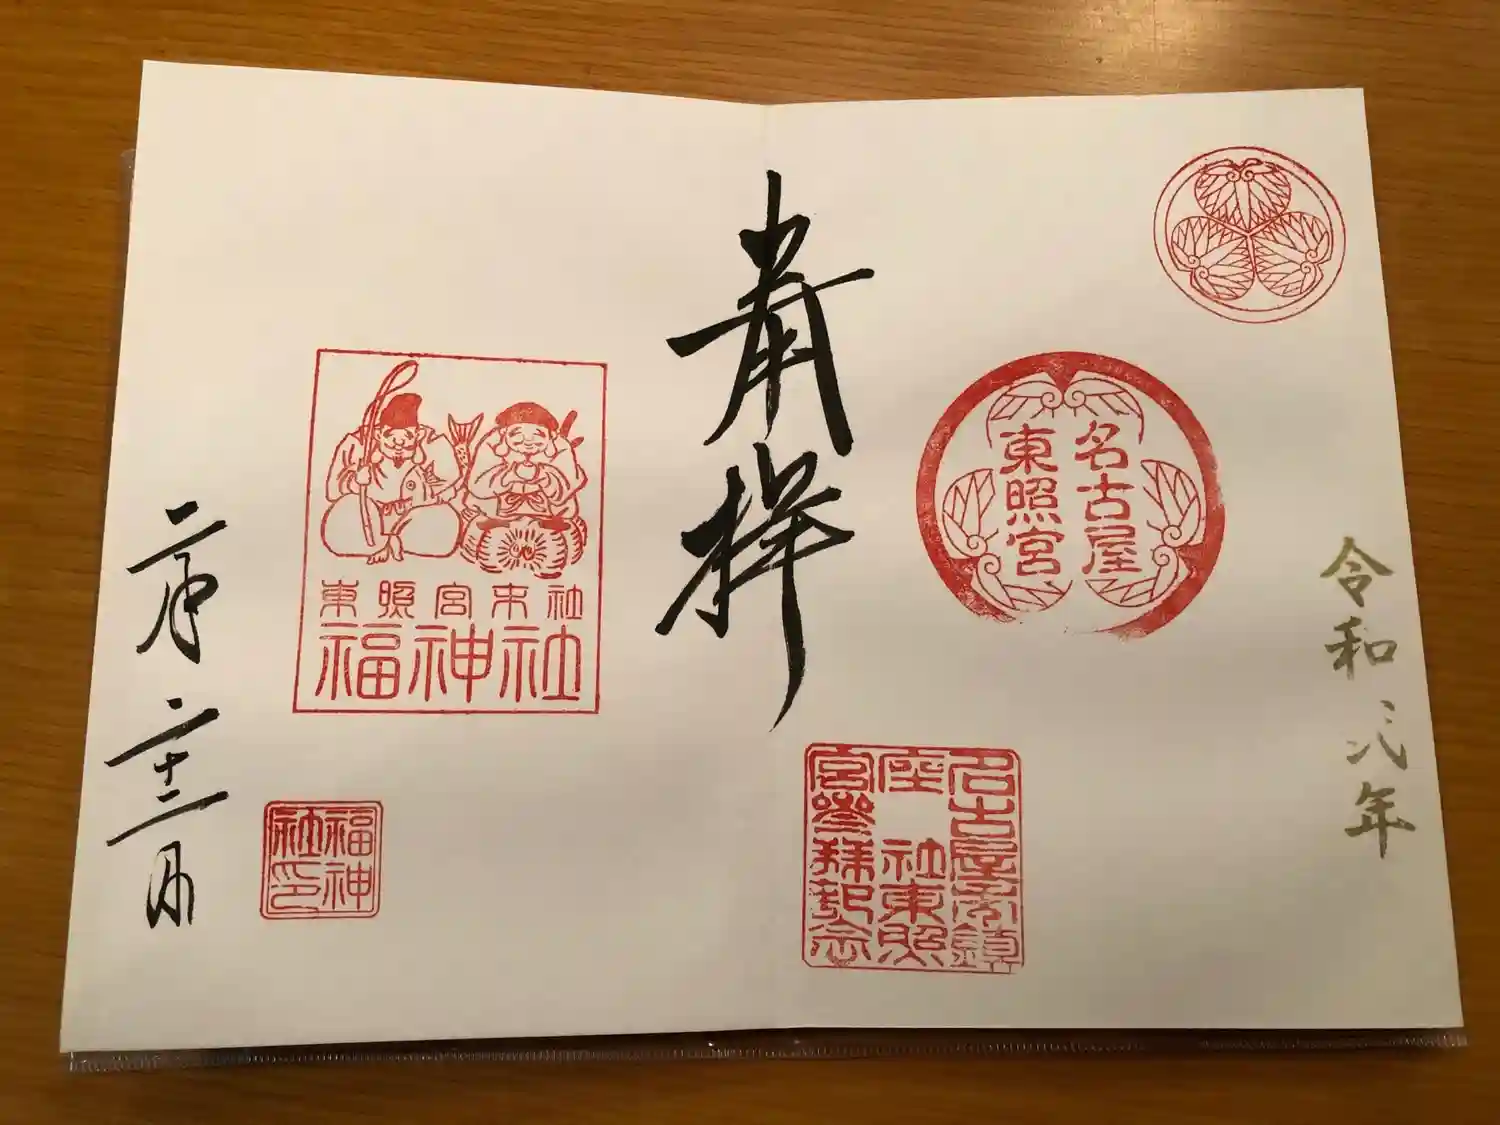 令和
年
名古屋
東照宮
名古屋市鎮
座 社東照
宮参拝記念
奉拝
東照宮末社
福神社
福神
社印
二月二十三日